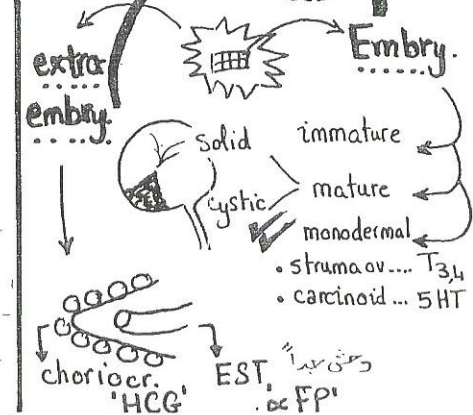 extra
embry.
Embry.
Solid
cystic
immature
mature
monodermal
• struma ov.... T3,4
• carcinoid... 5HT
choriocr.
'HCG'
EST,
وحش جداً
∝ FP'